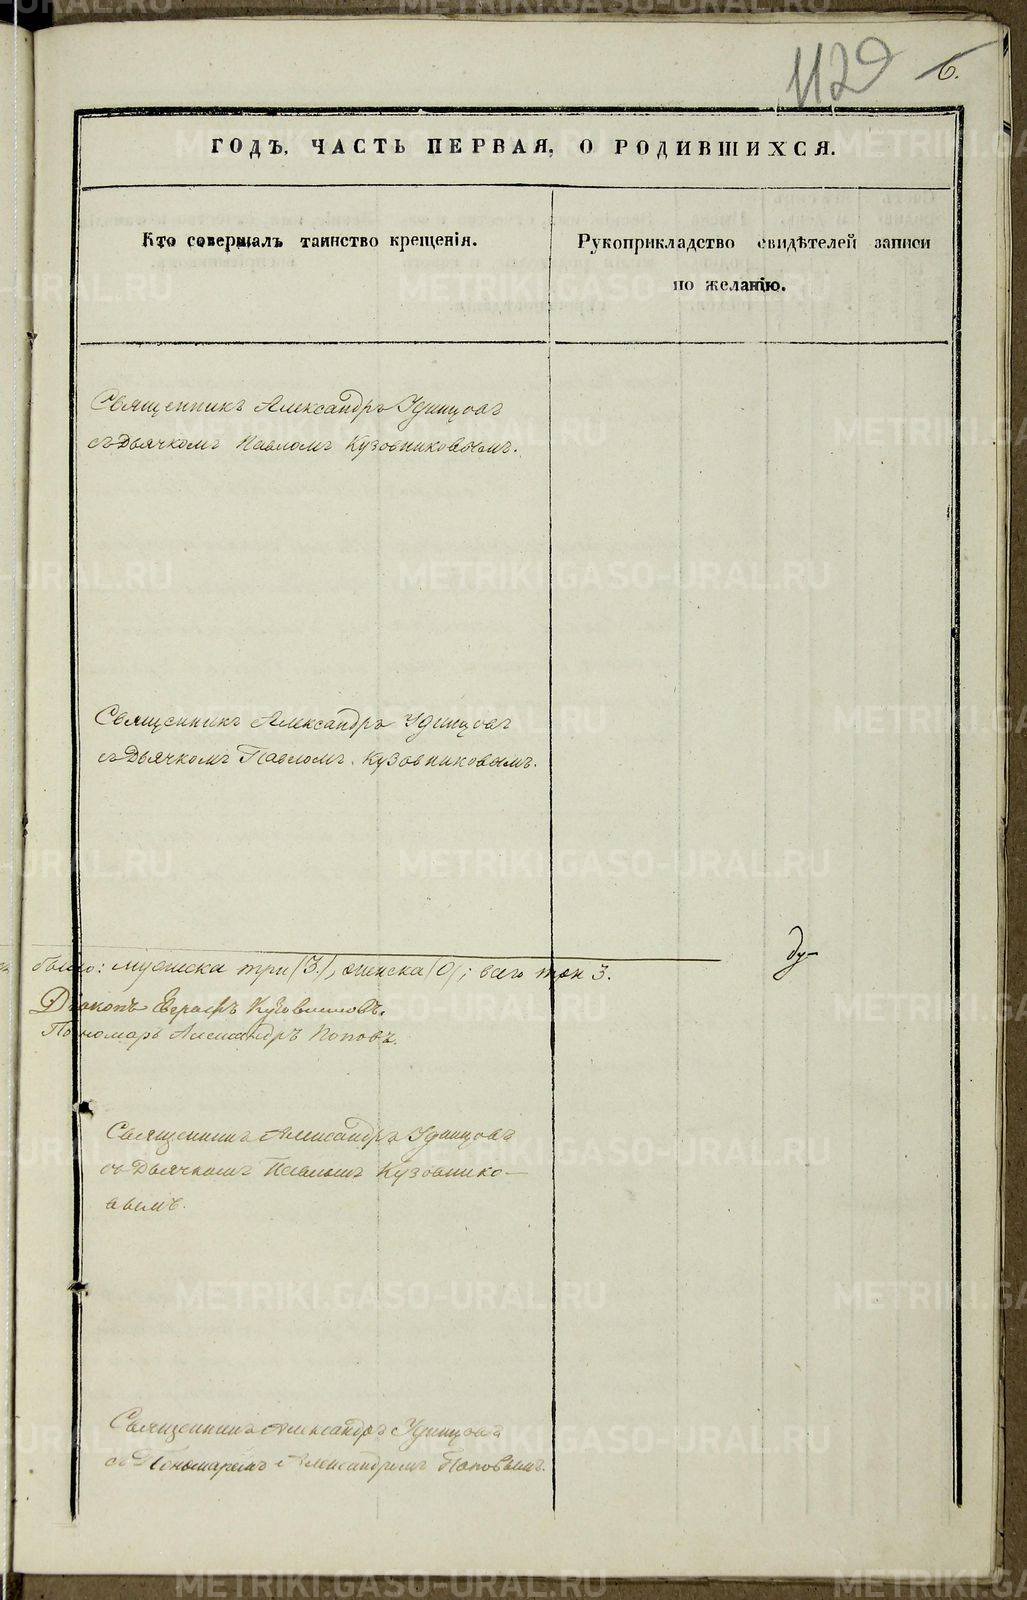 1129 6.
ГОДЪ, ЧАСТЬ ПЕРВАЯ, О РОДИВШИХСЯ.
Кто совершалъ таинство крещенія.
Рукоприкладство свидѣтелей записи
по желанію.
Священникъ Александръ Удинцовъ
съ Дьячкомъ Павломъ Кузовниковымъ.
Священникъ Александръ Удинцовъ
съ Дьячкомъ Павломъ Кузовниковымъ.
ду-
было: мужеска три (3.), женска (0); всего трои 3.
Діаконъ Кузовниковъ.
Пономарь Александръ Поповъ.
Священникъ Александръ Удинцовъ
съ Дьячкомъ Павломъ Кузовнико-
вымъ.
Священникъ Александръ Удинцовъ
съ Пономаремъ Александромъ Поповымъ.
METRIKI.GASO-URAL.RU